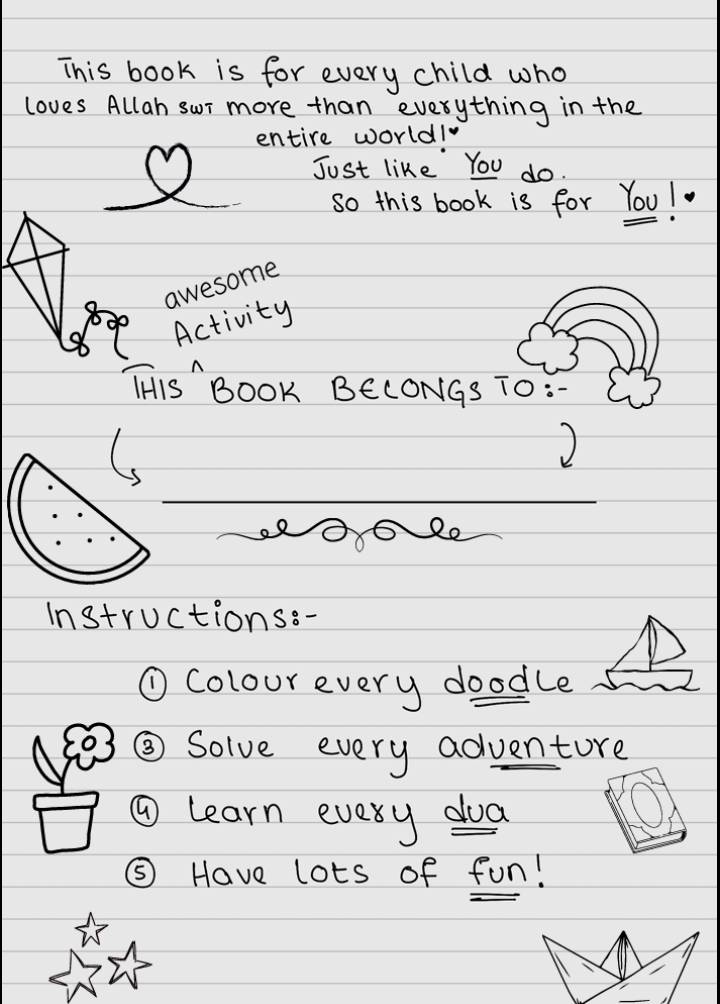 This book is for every child who
loves Allah SWT more than everything in the
entire world!♥
Just like You do.
So this book is for You!♥
awesome
Activity
^
THIS BOOK BELONGS TO:-
Instructions:-
① Colour every doodle
③ Solve every adventure
④ Learn every dua
⑤ Have lots of fun!